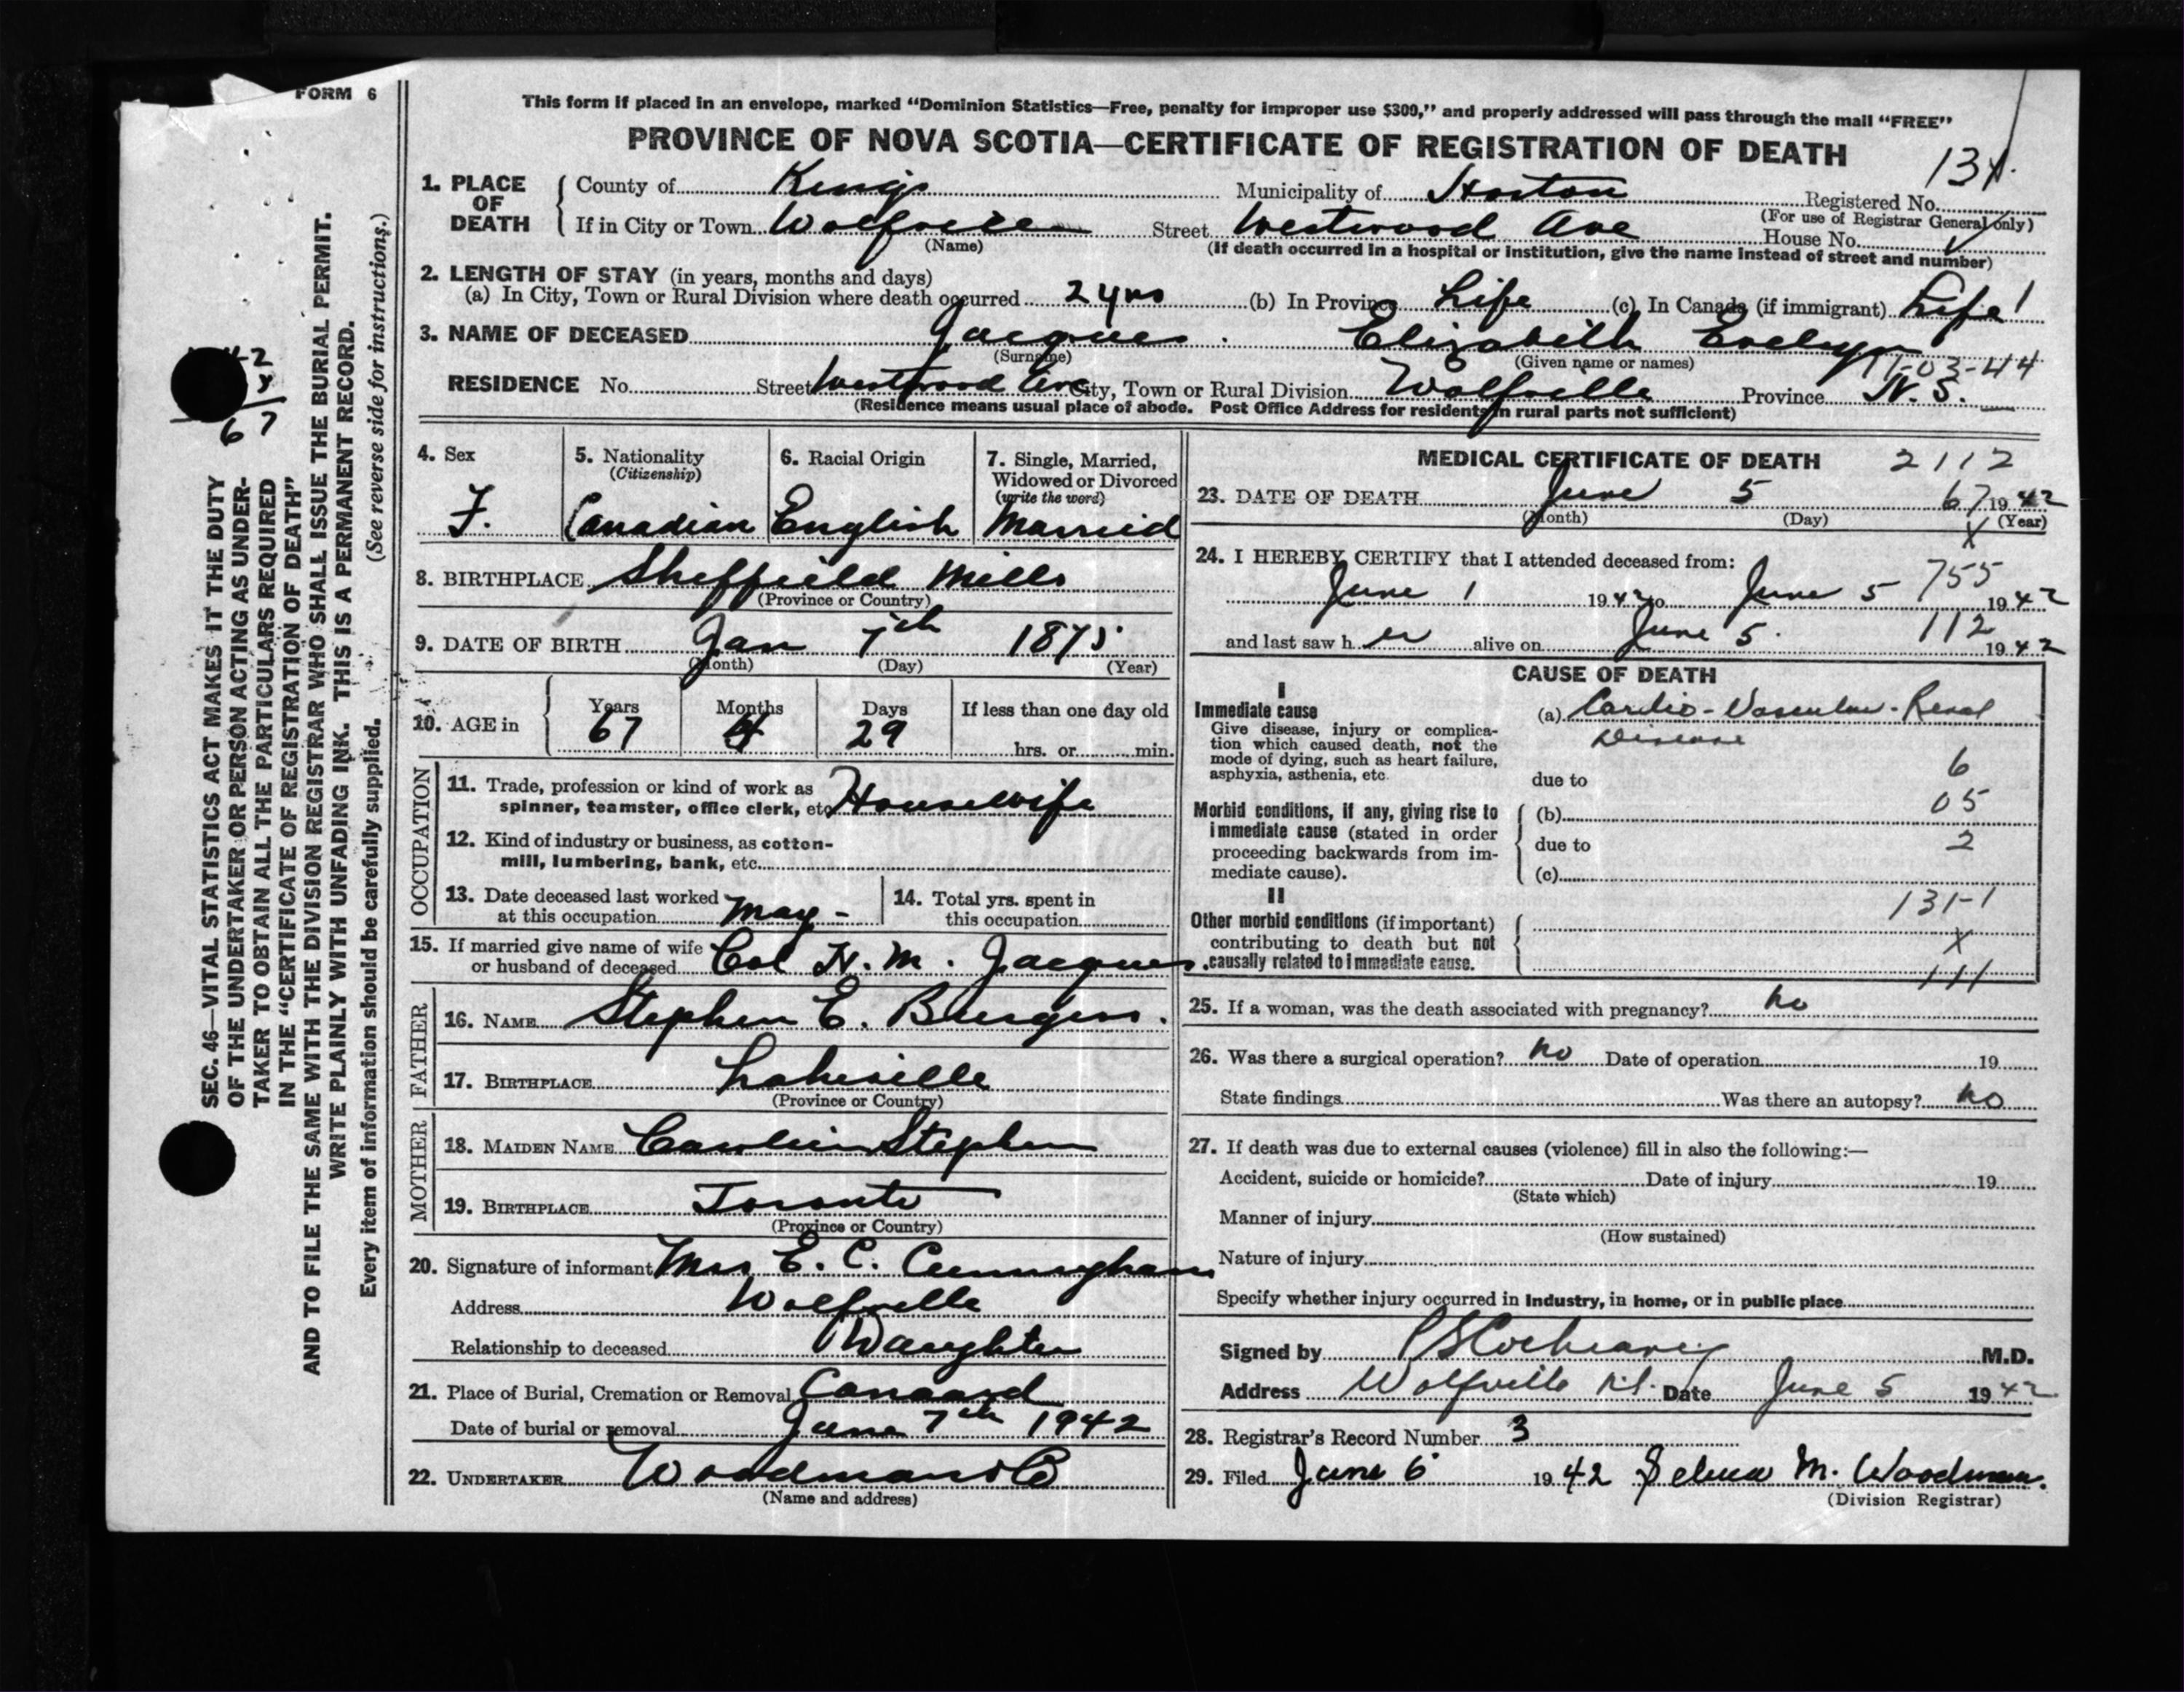 FORM 6
This form if placed in an envelope, marked “Dominion Statistics—Free, penalty for improper use $300,” and properly addressed will pass through the mail “FREE”
PROVINCE OF NOVA SCOTIA—CERTIFICATE OF REGISTRATION OF DEATH
1. PLACE OF DEATH County of Kings Municipality of Horton Registered No.
(For use of Registrar General only)
If in City or Town Wolfville Street Westwood Ave House No.
(Name) (If death occurred in a hospital or institution, give the name instead of street and number)
2. LENGTH OF STAY (in years, months and days)
(a) In City, Town or Rural Division where death occurred (b) In Province Life (c) In Canada (if immigrant) Life
3. NAME OF DECEASED Jacques Elizabeth Evelyn
(Surname) (Given name or names)
11-03-44
RESIDENCE No. Street Westwood Ave City, Town or Rural Division Wolfville Province N. S.
(Residence means usual place of abode. Post Office Address for residents in rural parts not sufficient)
4. Sex F.
5. Nationality (Citizenship) Canadian
6. Racial Origin English
7. Single, Married, Widowed or Divorced (write the word) Married
8. BIRTHPLACE Sheffield Mills
(Province or Country)
9. DATE OF BIRTH Jan 7th 1875
(Month) (Day) (Year)
10. AGE in Years 67 Months 4 Days 29 If less than one day old
hrs. or min.
OCCUPATION
11. Trade, profession or kind of work as
spinner, teamster, office clerk, etc. Housewife
12. Kind of industry or business, as cotton-
mill, lumbering, bank, etc.
13. Date deceased last worked
at this occupation May -
14. Total yrs. spent in
this occupation
15. If married give name of wife
or husband of deceased Col H. M. Jacques
FATHER
16. NAME Stephen E. Burgess.
17. BIRTHPLACE Lakeville
(Province or Country)
MOTHER
18. MAIDEN NAME Stephen
19. BIRTHPLACE Toronto
(Province or Country)
20. Signature of informant Mrs E. C. Cunningham
Address Wolfville
Relationship to deceased Daughter
21. Place of Burial, Cremation or Removal Canaard
Date of burial or removal June 7th 1942
22. UNDERTAKER
(Name and address)
MEDICAL CERTIFICATE OF DEATH 2112
23. DATE OF DEATH June 5 67 1942
(Month) (Day) X (Year)
24. I HEREBY CERTIFY that I attended deceased from:
755
June 1 1942 to June 5 1942
112
and last saw her alive on June 5. 1942
CAUSE OF DEATH
I
Immediate cause
Give disease, injury or complica-
tion which caused death, not the
mode of dying, such as heart failure,
asphyxia, asthenia, etc.
(a) Cardio-Vascular-Renal
Disease
6
due to
05
Morbid conditions, if any, giving rise to
immediate cause (stated in order
proceeding backwards from im-
mediate cause).
(b)
due to 2
(c)
II
131-1
Other morbid conditions (if important)
contributing to death but not
causally related to immediate cause.
X
111
25. If a woman, was the death associated with pregnancy? no
26. Was there a surgical operation? no Date of operation 19
State findings Was there an autopsy? no
27. If death was due to external causes (violence) fill in also the following:—
Accident, suicide or homicide? Date of injury 19
(State which)
Manner of injury
(How sustained)
Nature of injury
Specify whether injury occurred in Industry, in home, or in public place
Signed by M.D.
Address Wolfville Date June 5 1942
28. Registrar's Record Number 3
29. Filed June 6 1942 M. Woodman.
(Division Registrar)
SEC. 46—VITAL STATISTICS ACT MAKES IT THE DUTY
OF THE UNDERTAKER OR PERSON ACTING AS UNDER-
TAKER TO OBTAIN ALL THE PARTICULARS REQUIRED
IN THE “CERTIFICATE OF REGISTRATION OF DEATH”
AND TO FILE THE SAME WITH THE DIVISION REGISTRAR WHO SHALL ISSUE THE BURIAL PERMIT.
WRITE PLAINLY WITH UNFADING INK. THIS IS A PERMANENT RECORD.
Every item of information should be carefully supplied. (See reverse side for instructions.)
67